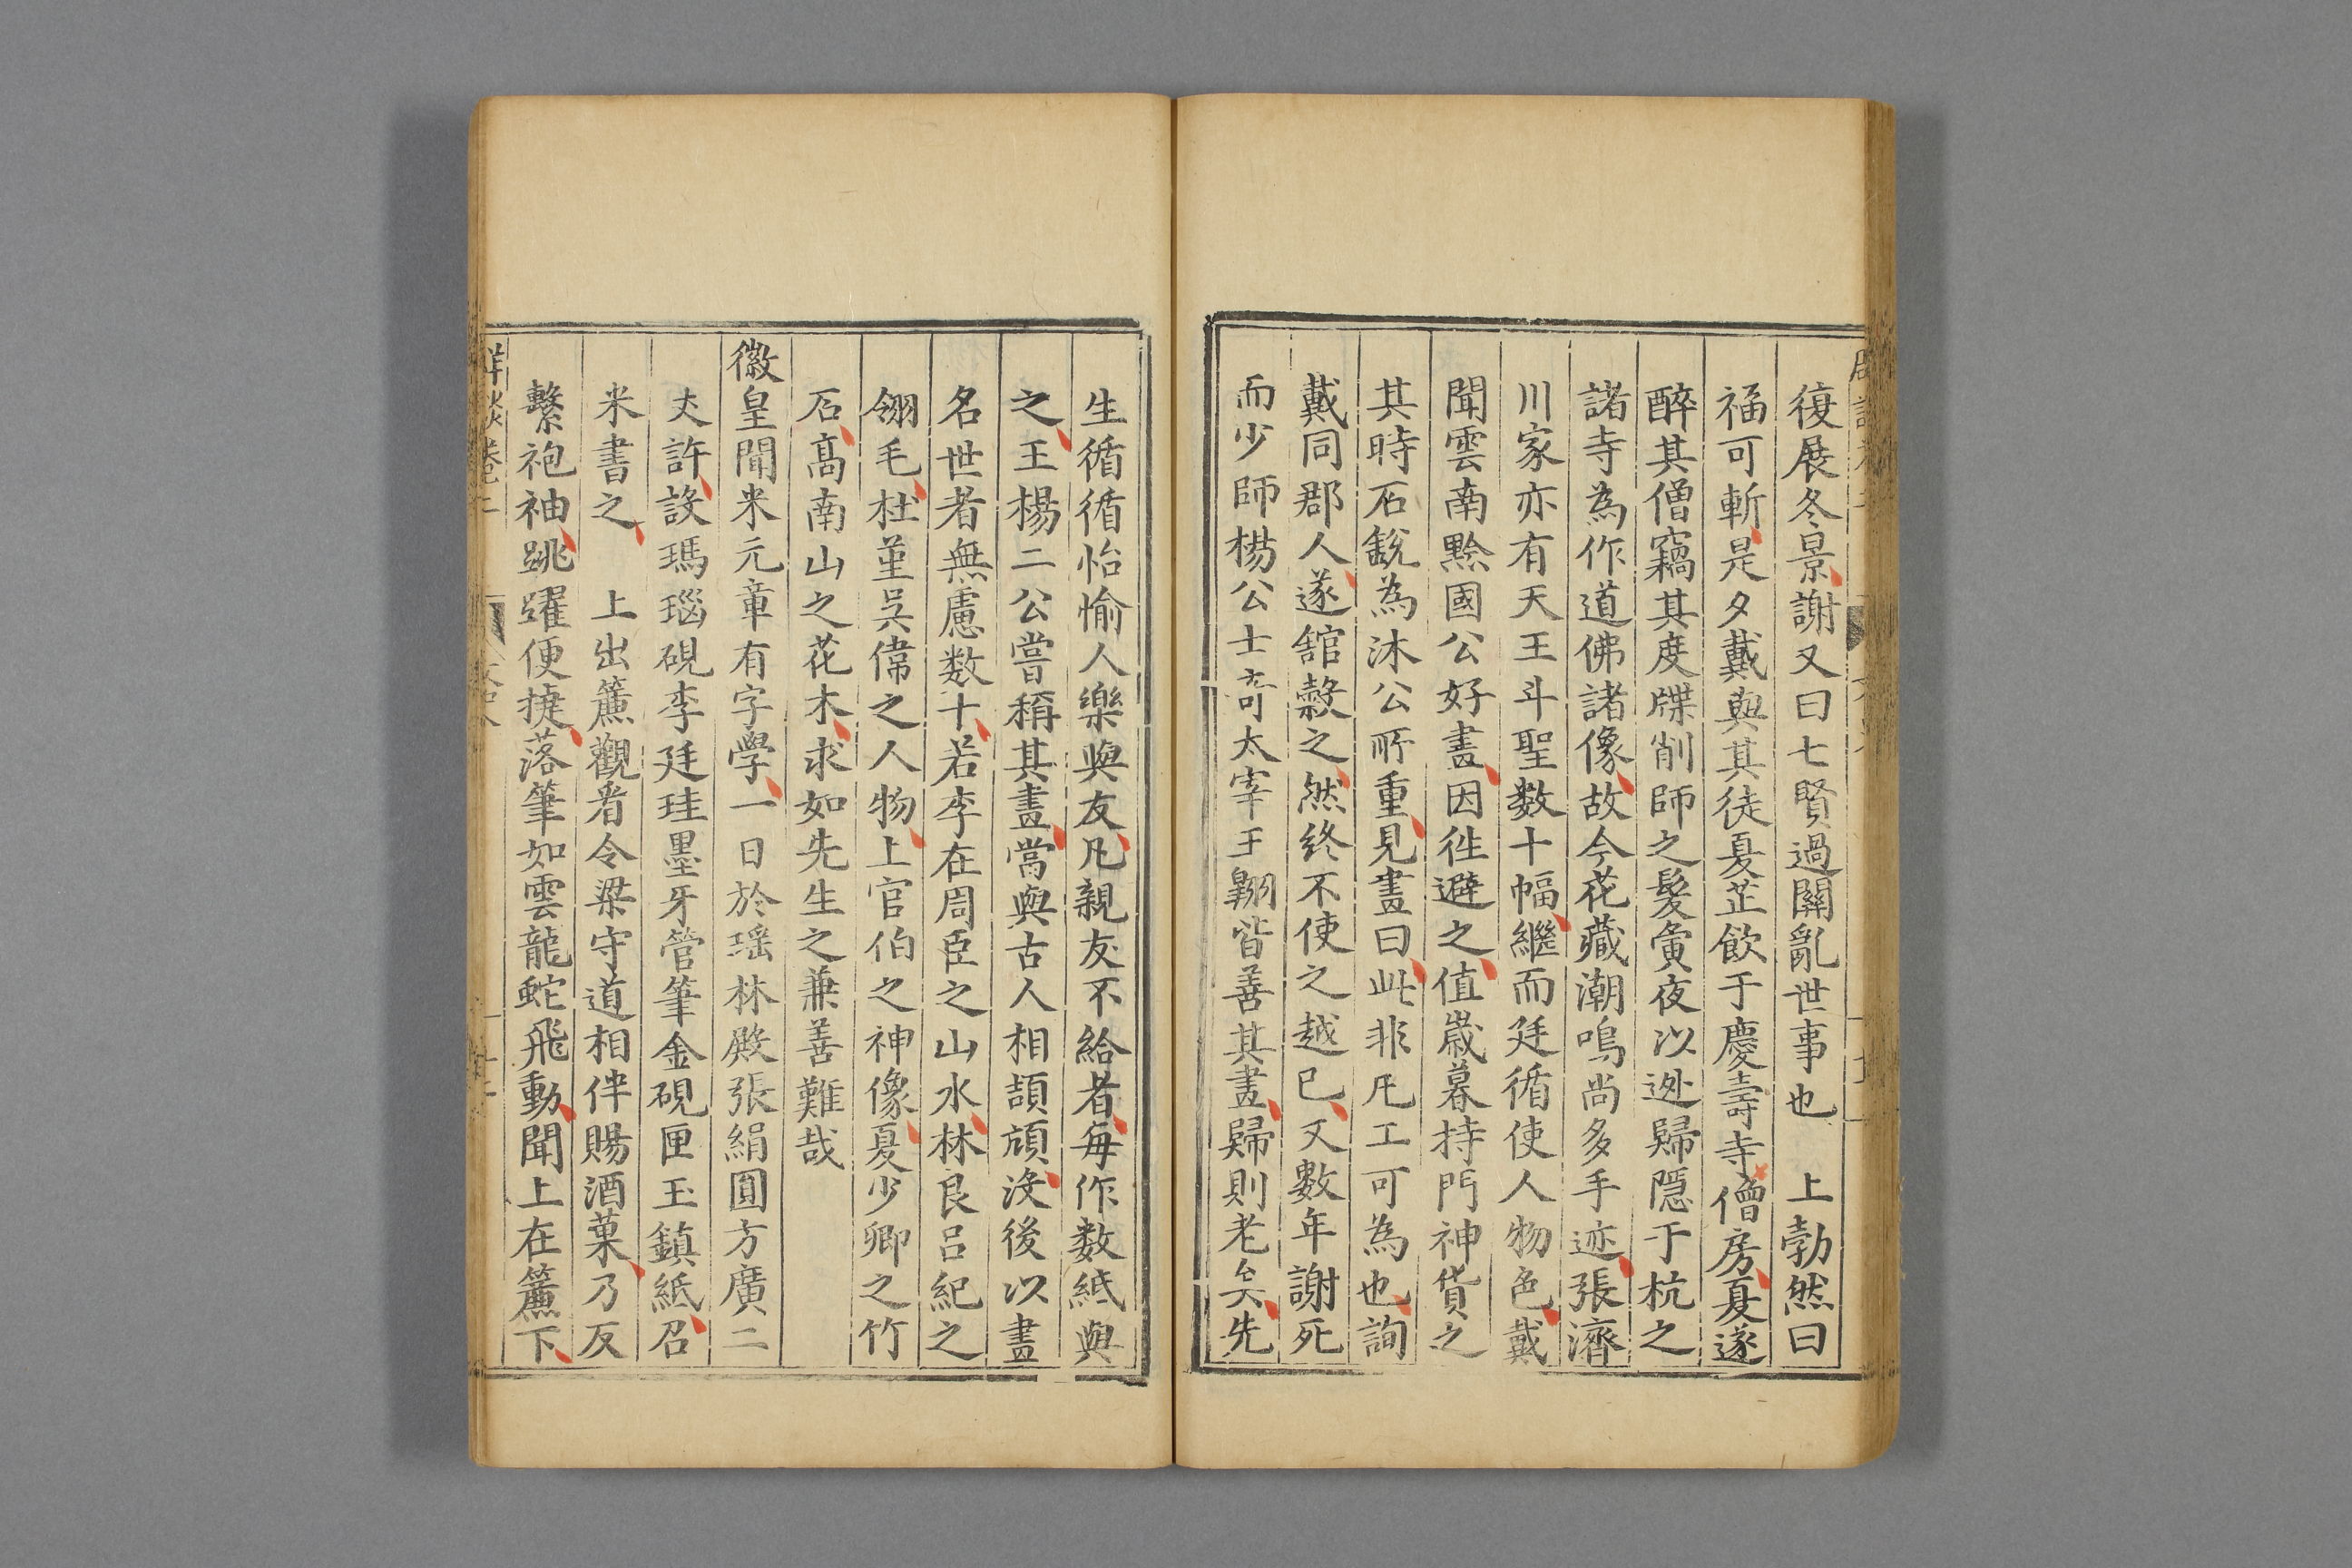 復展冬景謝又曰七賢過關亂世事也　上勃然曰
福可斬是夕戴與其徒夏芷飲于慶壽寺僧房夏遂
醉其僧竊其度牒削師之髮夤夜以逃歸隱于杭之
諸寺為作道佛諸像故今花藏潮鳴尚多手迹張濟
川家亦有天王斗聖数十幅繼而廷循使人物色戴
聞雲南黔國公好畫因徃避之值歲暮持門神貨之
其時石銳為沐公所重見畫曰此非凡工可為也詢
戴同郡人遂舘穀之然終不使之越己又數年謝死
而少師楊公士竒太宰王翺皆善其畫歸則老矣先
生循循怡愉人樂與友凡親友不給者每作数紙與
之王楊二公嘗稱其畫當與古人相頡頏没後以畫
名世者無慮数十若李在周臣之山水林良呂紀之
翎毛杜堇吳偉之人物上官伯之神像夏少卿之竹
石高南山之花木求如先生之兼善難哉
徽皇聞米元章有字學一日於瑶林殿張絹圓方廣二
丈許設瑪瑙硯李廷珪墨牙管筆金硯匣玉鎮紙召
米書之　上出簾觀看令梁守道相伴賜酒菓乃反
繫袍袖跳躍便捷落筆如雲龍蛇飛動聞上在簾下
卷二